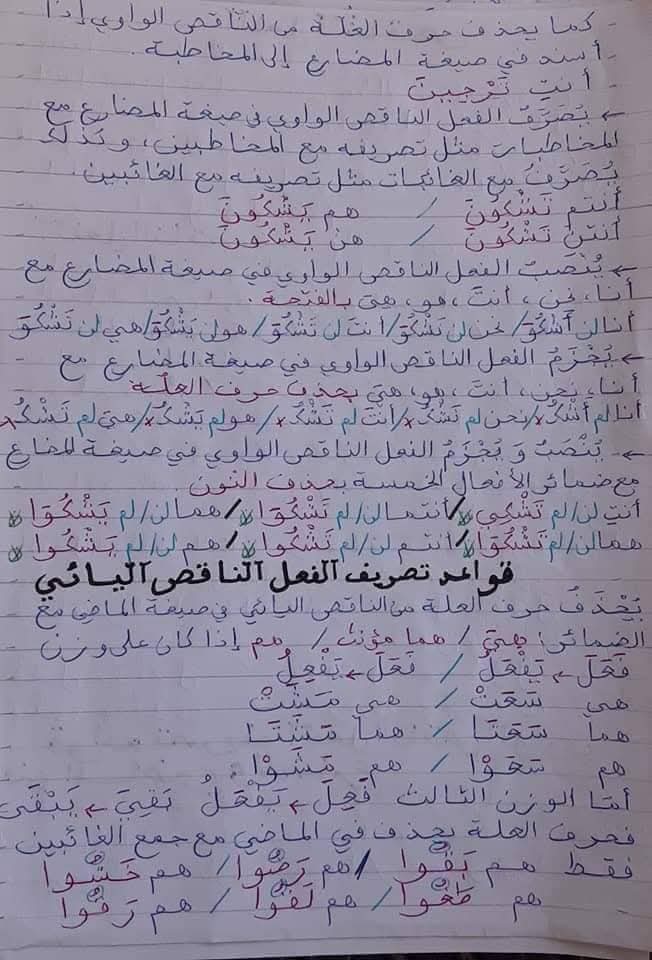 - كما يحذف حرف العلة من الناقص الواوي إذا
- أسند في صيغة المضارع إلى المخاطبة.
- أنتِ تَرْجِينَ
← يُصَرَّفُ الفعل الناقص الواوي في صيغة المضارع مع
المخاطبات مثل تصريفه مع المخاطبين، وكذلك
يُصَرَّفُ مع الغائبات مثل تصريفه مع الغائبين.
أنتم تَشْكُونَ / هم يَشْكُونَ
أنتن تَشْكُونَ / هن يَشْكُونَ
← يُنْصَبُ الفعل الناقص الواوي في صيغة المضارع مع
أنا، نحن، أنتَ، هو، هي بالفتحة.
أنا لن أَشْكُوَ / نحن لن نَشْكُوَ / أنتَ لن تَشْكُوَ / هو لن يَشْكُوَ / هي لن تَشْكُوَ
← يُجْزَمُ الفعل الناقص الواوي في صيغة المضارع مع
أنا، نحن، أنتَ، هو، هيَ بحذف حرف العلة
أنا لم أَشْكُ / نحن لم نَشْكُ / أنتَ لم تَشْكُ / هو لم يَشْكُ / هيَ لم تَشْكُ
← يُنْصَبُ وَ يُجْزَمُ الفعل الناقص الواوي في صيغة المضارع
مع ضمائر الأفعال الخمسة بحذف النون
أنتِ لن/لم تَشْكِي / أنتما لن/لم تَشْكُوَا / هما لن/لم يَشْكُوَا
هما لن/لم تَشْكُوَا / أنتم لن/لم تَشْكُوا / هم لن/لم يَشْكُوا
قواعد تصريف الفعل الناقص اليائي
يُحْذَفُ حرف العلة من الناقص اليائي في صيغة الماضي مع
الضمائر: هيَ / هما مؤنث / هم إذا كان على وزن
فَعَلَ ← يَفْعَلُ / فَعَلَ ← يَفْعِلُ
هي سَعَتْ / هي مَشَتْ
هما سَعَتَا / هما مَشَتَا
هم سَعَوْا / هم مَشَوْا
أمّا الوزن الثالث فَعِلَ ← يَفْعَلُ بَقِيَ ← يَبْقَى
فحرف العلة يحذف في الماضي مع جمع الغائبين
فقط هم بَقُوا / هم رَضُوا / هم خَشُوا
هم طَغُوا / هم لَقُوا / هم رَقُوا